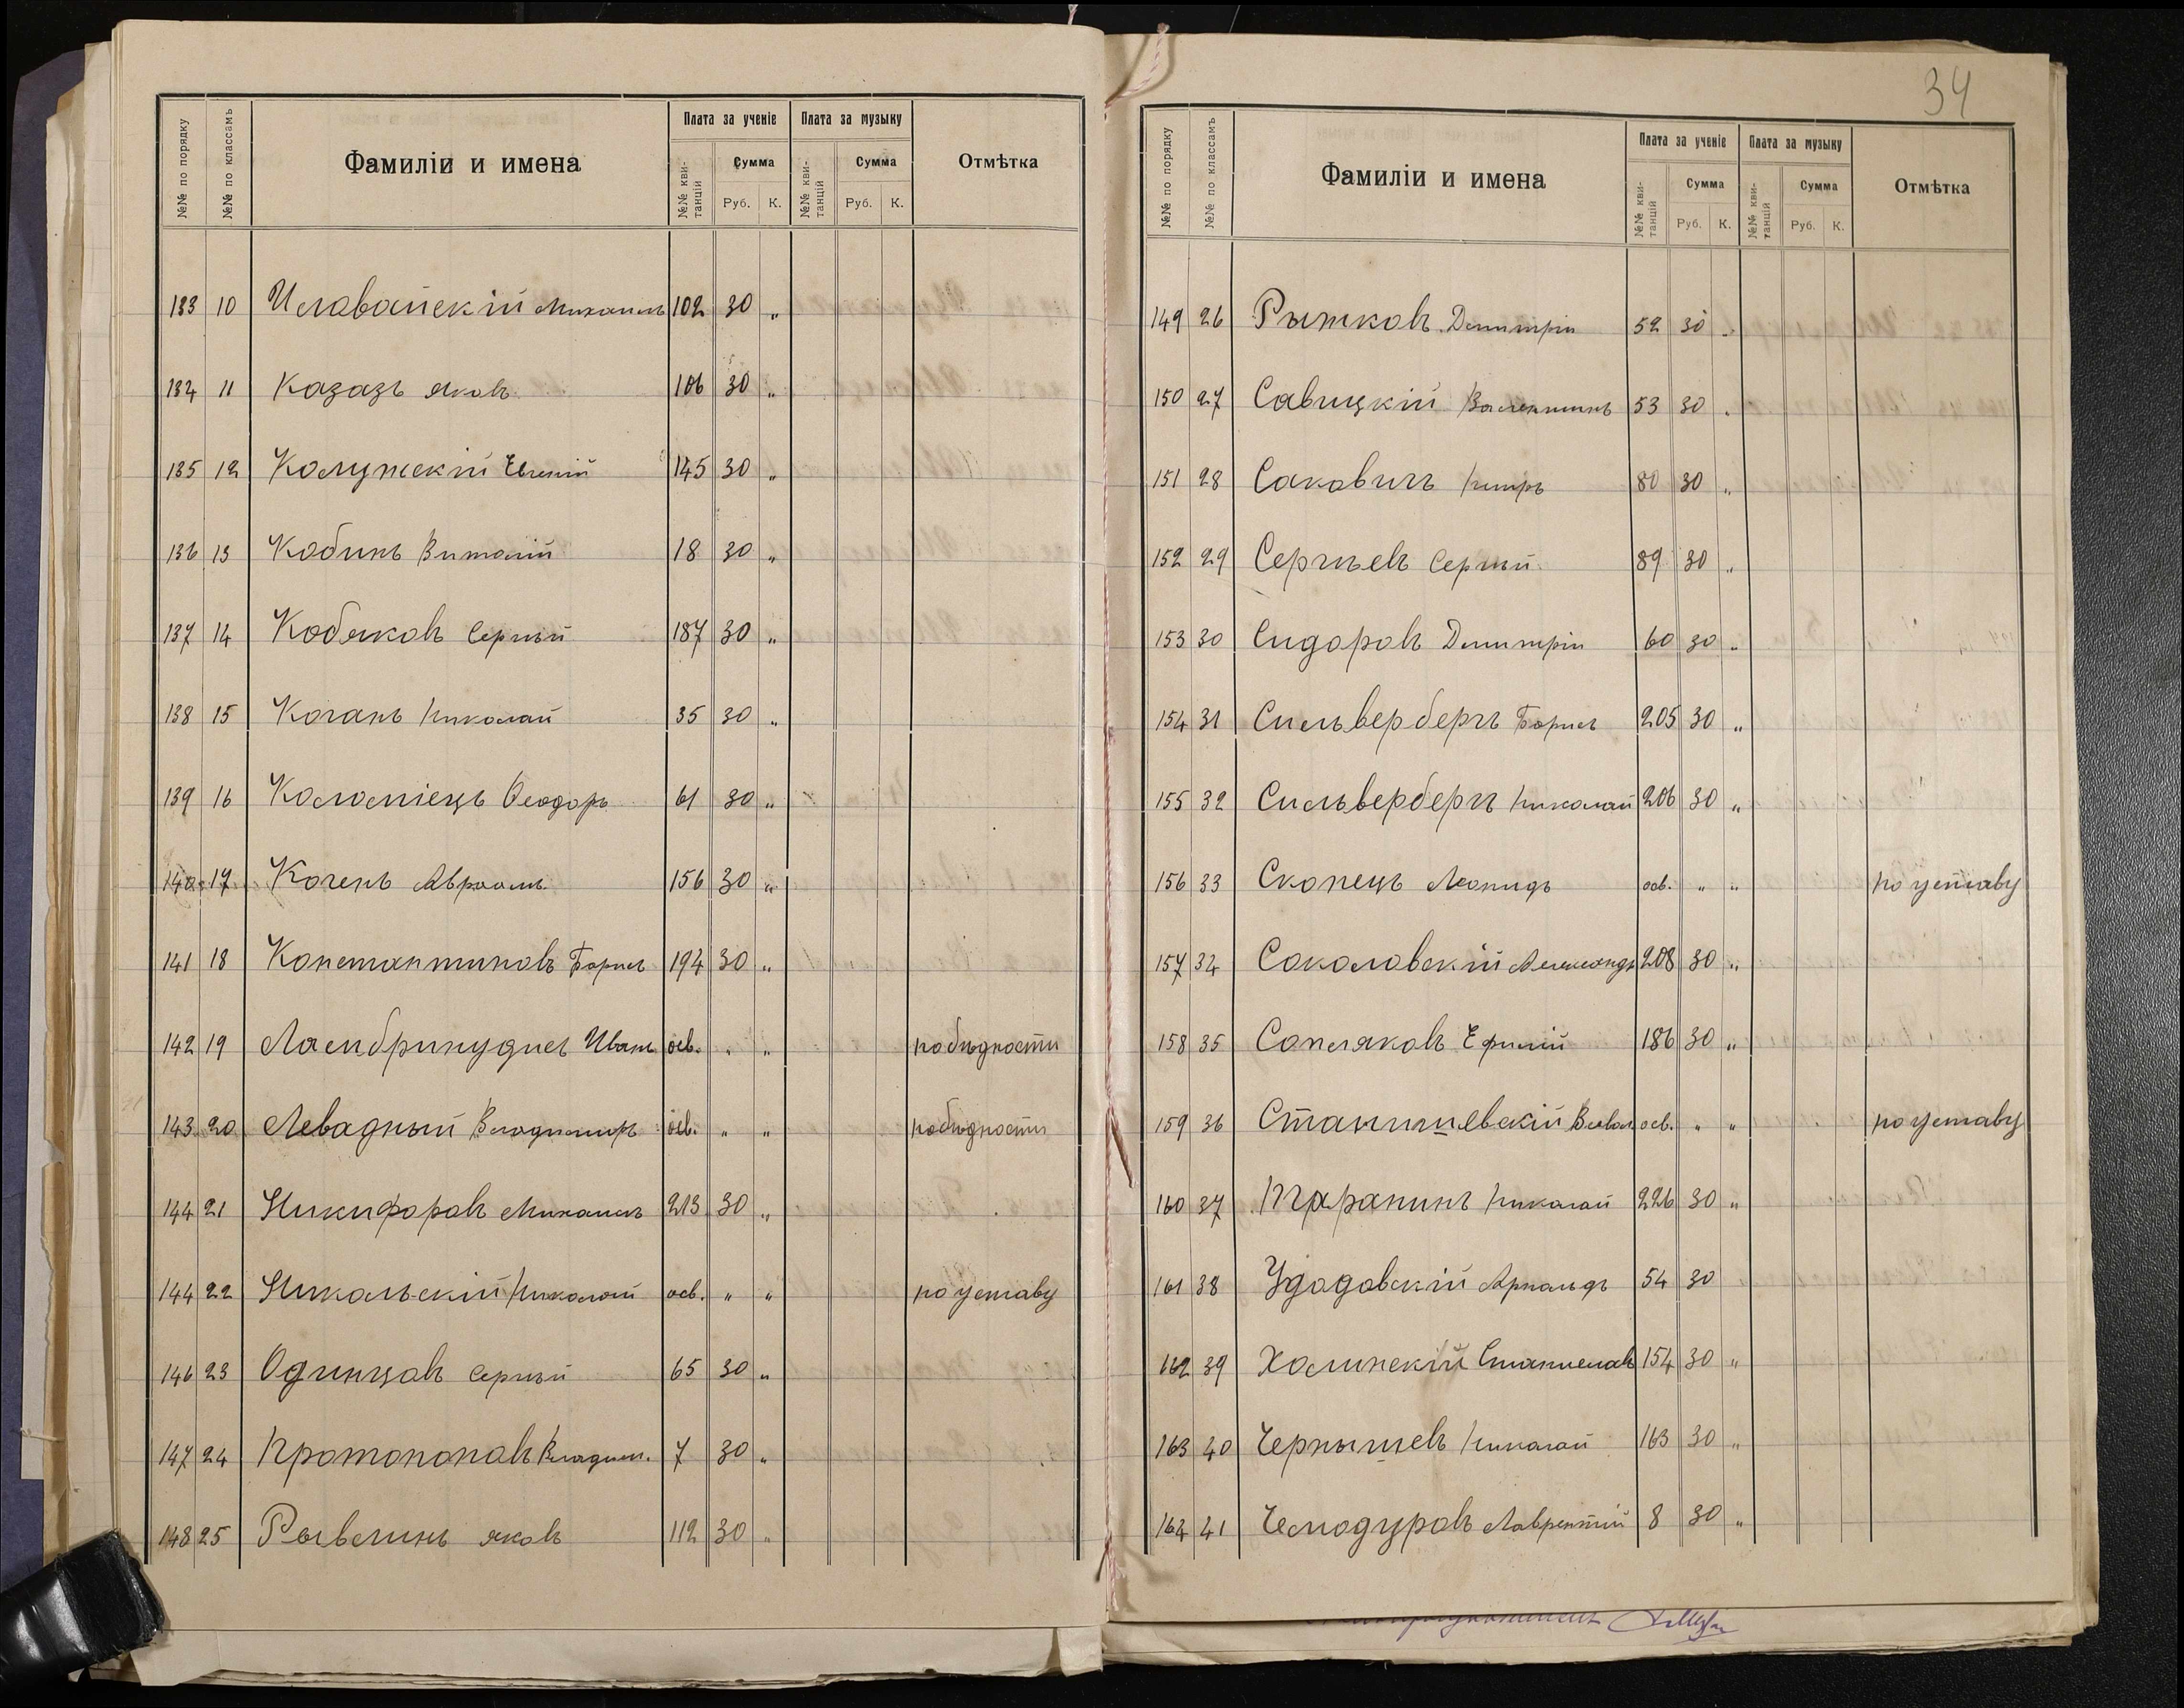 №№ по порядку №№ по классамъ Фамиліи и имена Плата за ученіе Плата за музыку Отмѣтка
№№ кви-танцій Сумма №№ кви-танцій Сумма
Руб. К. Руб. К.
133 10 Иловайскій Михаилъ 102 30 „
134 11 Казазъ Яковъ 106 30 „
135 12 Калужскій Евгеній 145 30 „
136 13 Кобинъ Виталій 18 30 „
137 14 Кобяковъ Сергѣй 187 30 „
138 15 Коганъ Николай 35 30 „
139 16 Коломіецъ Ѳеодоръ 61 30 „
140 17 Когенъ Авраамъ 156 30 „
141 18 Константиновъ Борисъ 194 30 „
142 19 Ламбринудисъ Иванъ осв. „ „ по бѣдности
143 20 Левадный Владимиръ осв. „ „ по бѣдности
144 21 Никифоровъ Михаилъ 213 30 „
144 22 Никольскій Николай осв. „ „ по уставу
146 23 Одинцовъ Сергѣй 65 30 „
147 24 Протопоповъ Владим. 7 30 „
148 25 Рывлинъ Яковъ 112 30 „
34
№№ по порядку №№ по классамъ Фамиліи и имена Плата за ученіе Плата за музыку Отмѣтка
№№ кви-танцій Сумма №№ кви-танцій Сумма
Руб. К. Руб. К.
149 26 Рыжковъ Димитрій 52 30 „
150 27 Савицкій Валентинъ 53 30 „
151 28 Саковичъ Киръ 80 30 „
152 29 Сергѣевъ Сергѣй 89 30 „
153 30 Сидоровъ Димитрій 60 30 „
154 31 Сильвербергъ Борисъ 205 30 „
155 32 Сильвербергъ Николай 206 30 „
156 33 Скопецъ Леонидъ осв. „ „ по уставу
157 34 Соколовскій Александръ 208 30 „
158 35 Сопляковъ Ефимій 186 30 „
159 36 Станишевскій Всевол. осв. „ „ по уставу
160 37 Таранинъ Николай 226 30 „
161 38 Удодовскій Арнольдъ 54 30
162 39 Холинскій Станиславъ 154 30 „
163 40 Чернышевъ Николай 163 30 „
164 41 Чемодуровъ Лаврентій 8 30 „